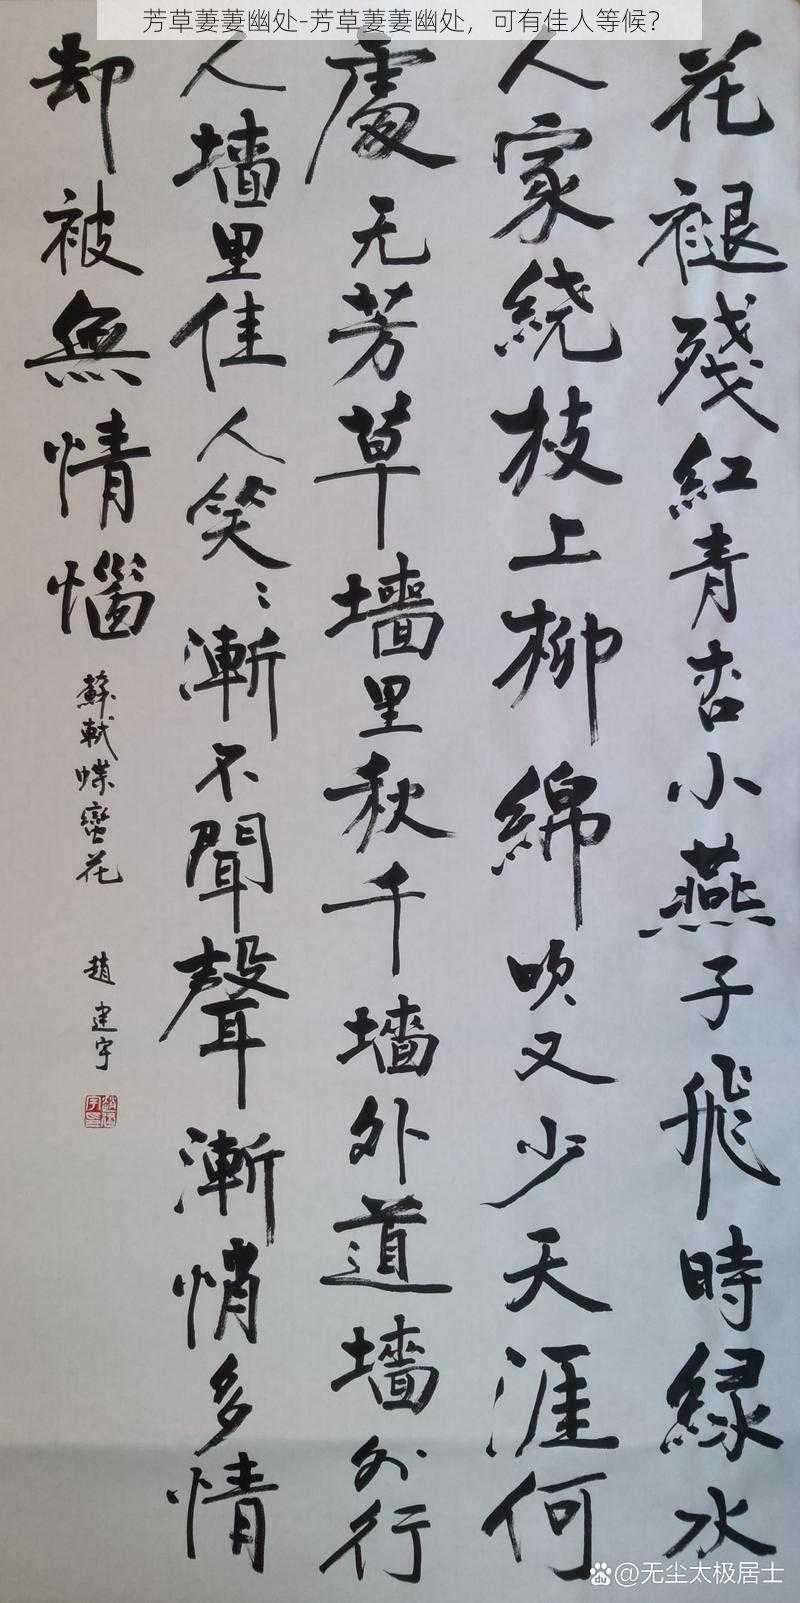 芳草萋萋幽处-芳草萋萋幽处，可有佳人等候？
花褪殘紅青杏小燕子飛時緑水
人家绕枝上柳綿吹又少天涯何
處无芳草墙里秋千墙外道墙外行
人墙里佳人笑〻漸不聞聲漸悄多情
却被無情惱
蘇軾蝶蠻花
趙建宇
@无尘太极居士